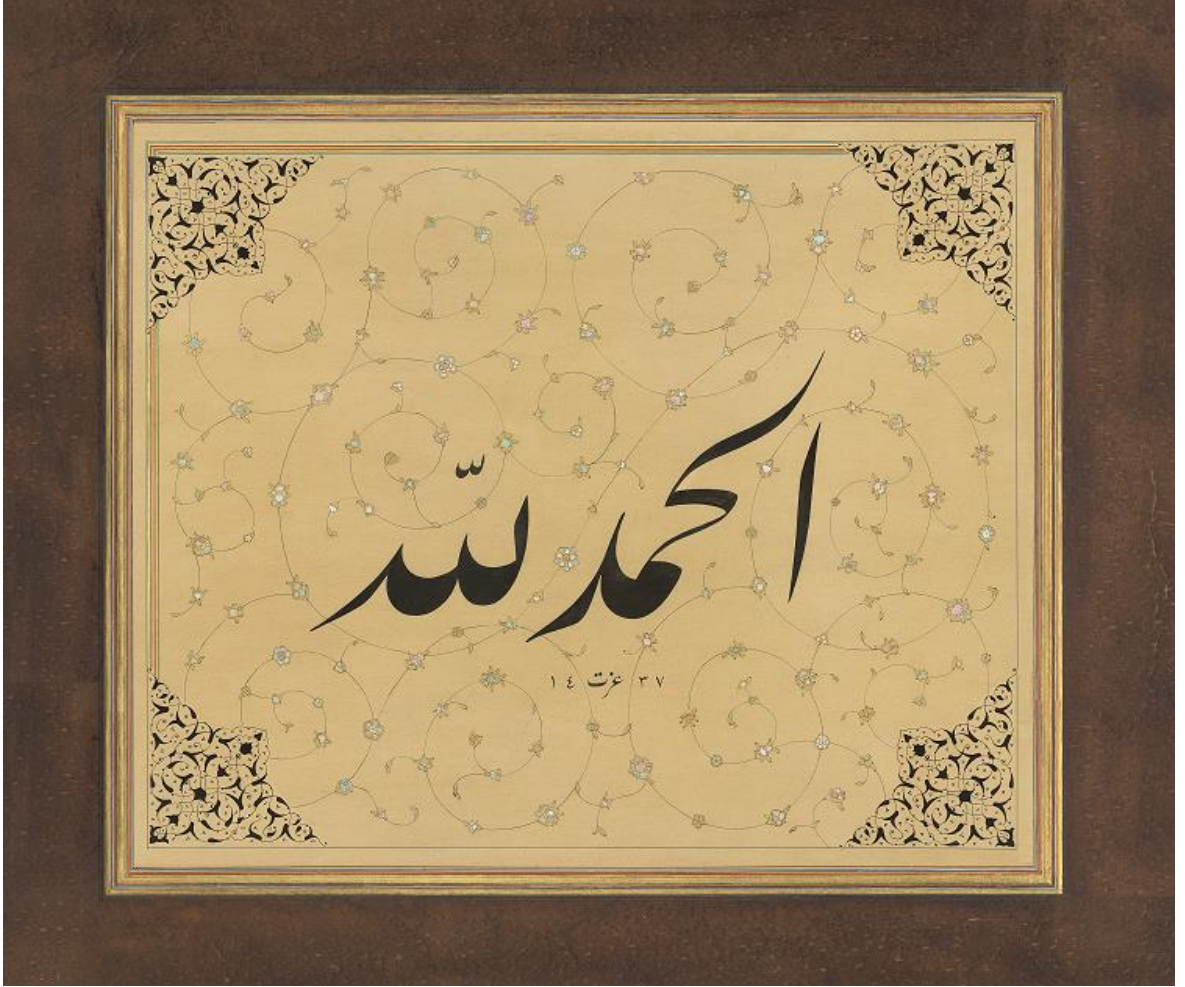 الحمد لله
١٤ عزت ٣٧